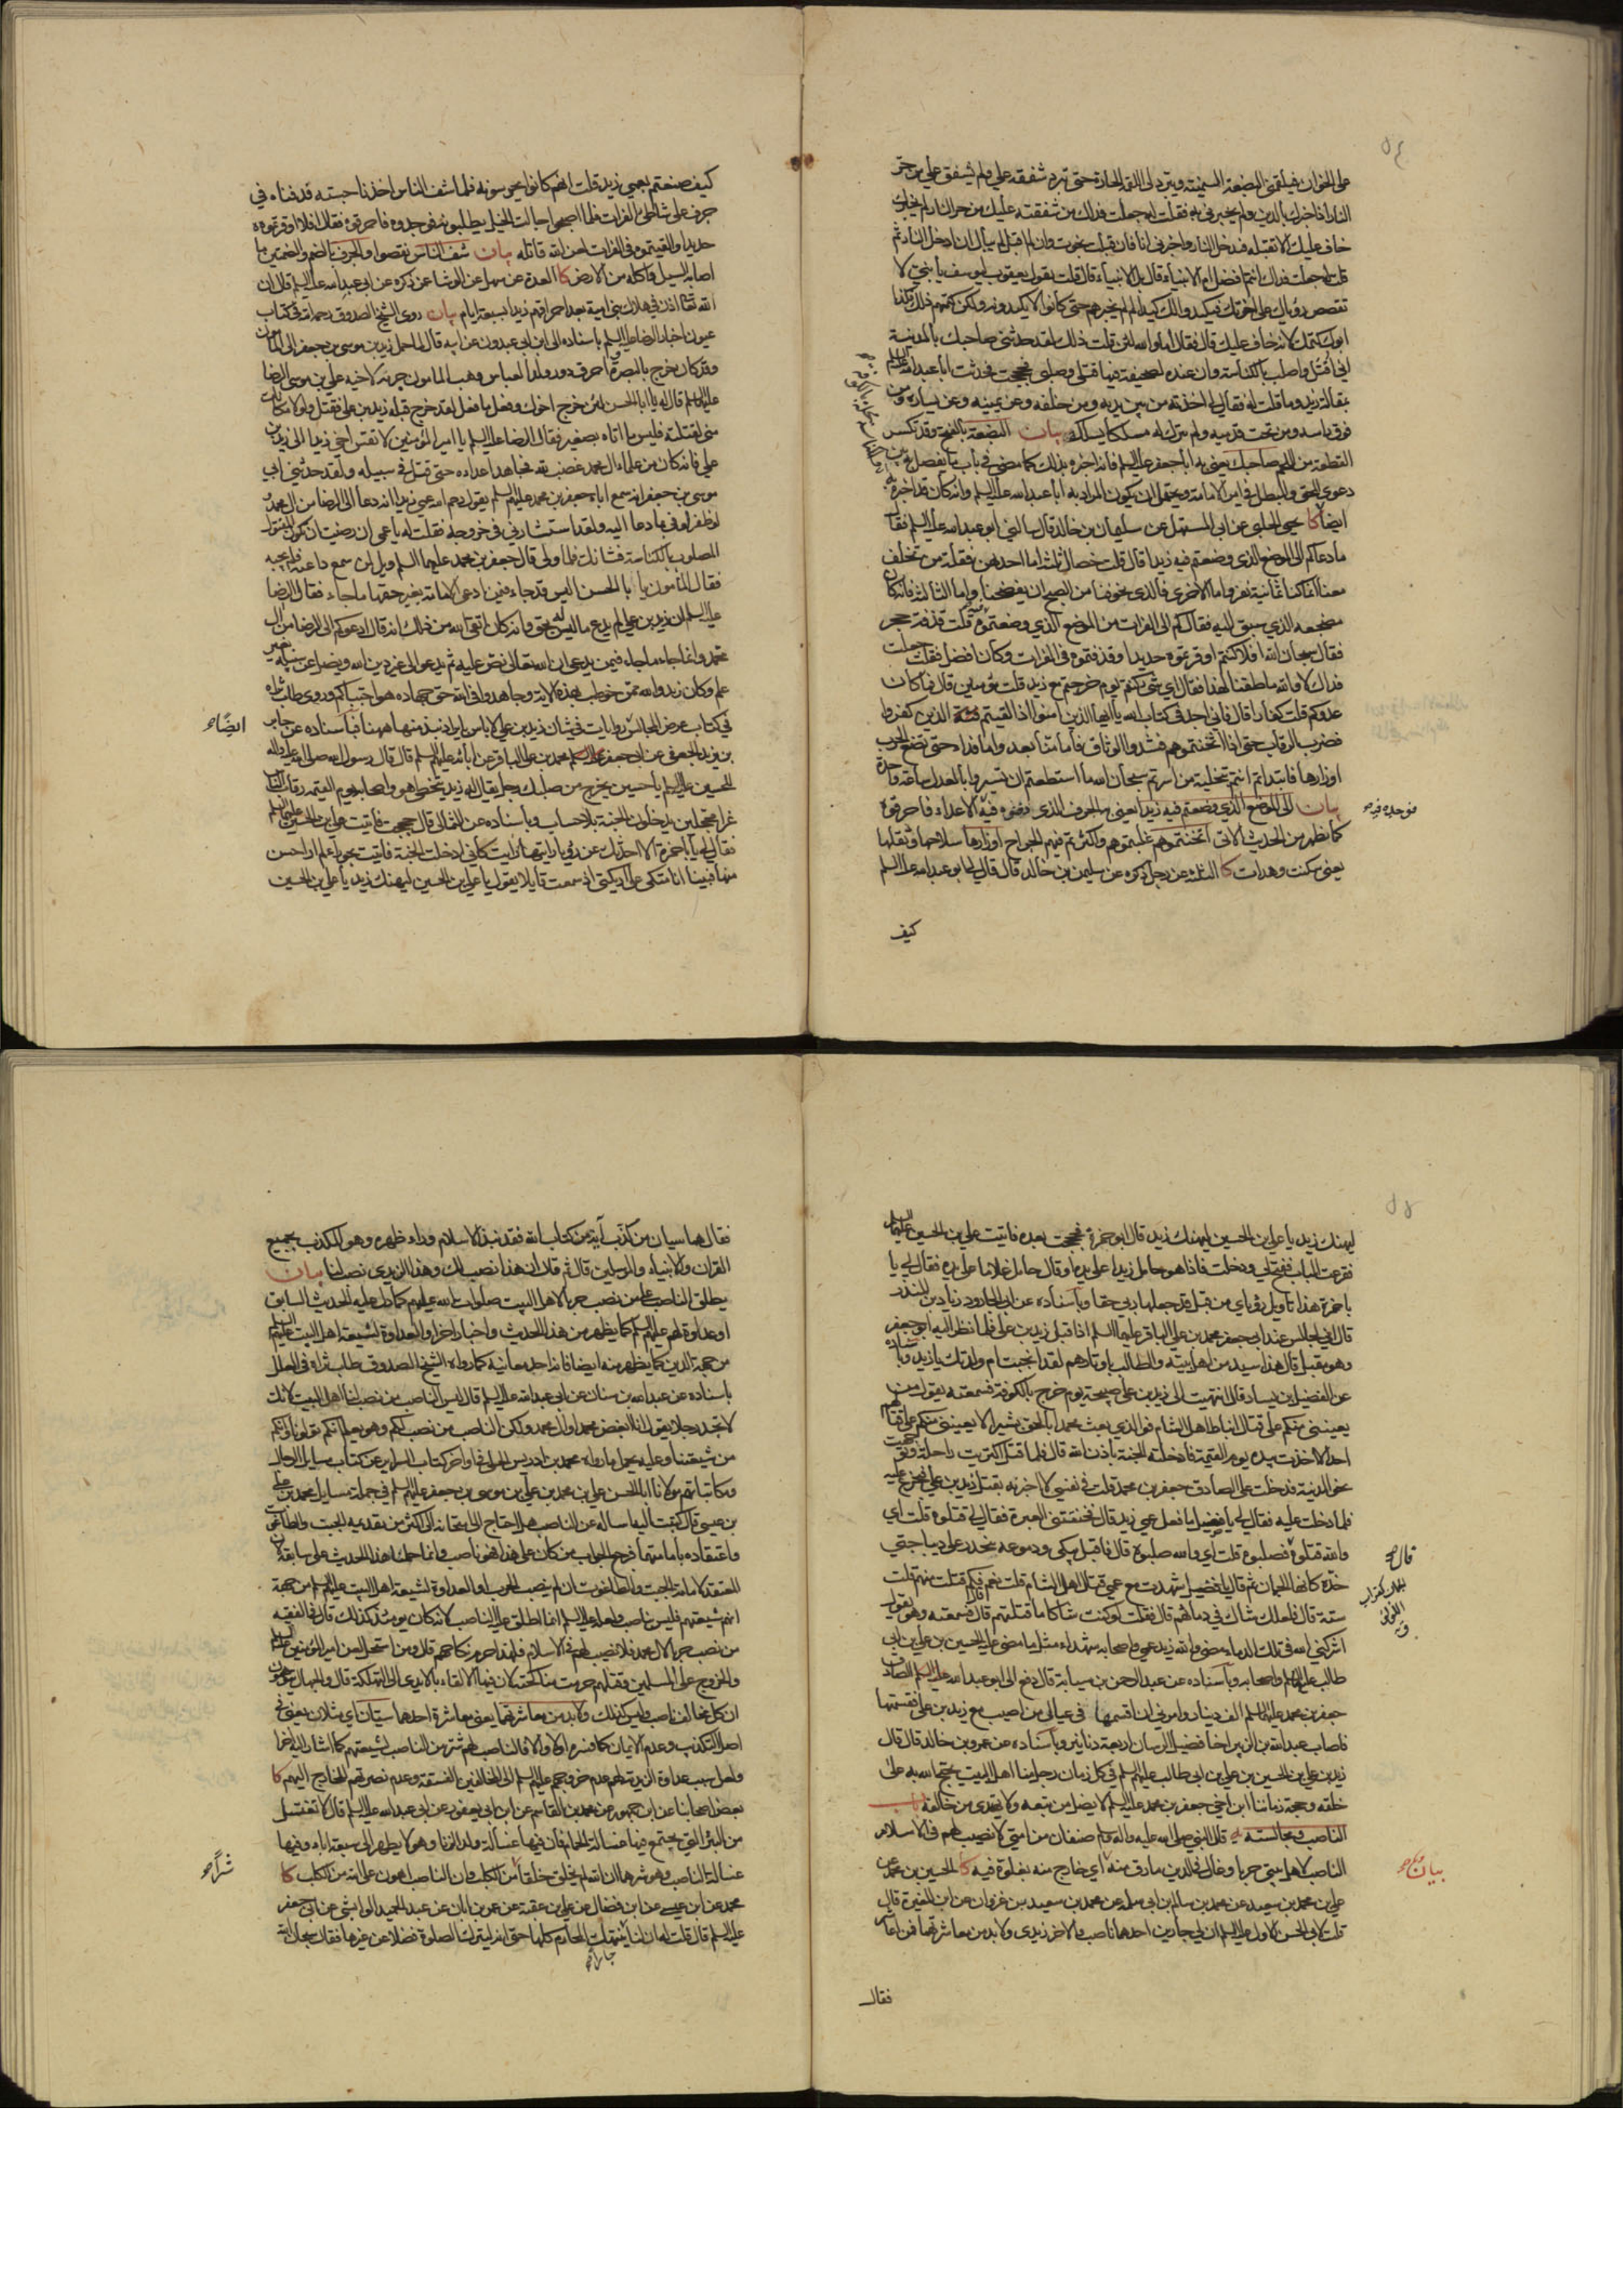 على الخوان فيلقمنى البضعة السمينة ويبرد لى اللقمة الحارة حتى تبرد شفقة علي ولم يشفق علي من حر
النار اذا اخبرك بالدين ولم يخبرني به فقلت له جعلت فداك من شفقته عليك من حر النار لم يخبرك
خاف عليك الا تقبله فتدخل النار واخبرني انا فان قبلت نجوت وان لم اقبل لم يبال ان ادخل النار ثم
قلت له جعلت فداك انتم افضل ام الانبياء قال بل الانبياء قال قلت يقول يعقوب ليوسف يا بنيّ لا
تقصص رؤياك على اخوتك فيكيدوا لك كيدا لم لم يخبرهم حتى كانوا لا يكيدونه ولكن كتمهم ذلك وكذا
ابوك كتمك لانه خاف عليك قال فقال اما والله لئن قلت ذلك لقد حدثني صاحبك بالمدينة
اني اقتل واصلب بالكناسة وان عنده لصحيفة فيها قتلى وصلبى فحججت فحدثت أبا عبدالله عليه السلم
بمقالة زيد وما قلت له فقال لي اخذته من بين يديه ومن خلفه وعن يمينه وعن يساره ومن
فوق رأسه ومن تحت قدميه ولم تترك له مسلكا يسلكه بيان البضعة بالفتح وقد تكسر
القطعة من اللحم صاحبك يعنى به أبا جعفر عليه السلم فانه اخبره بذلك كما مضى في باب ما يفصل به بين
دعوى المحق والمبطل في امر الامامة ويحتمل ان يكون المراد به أبا عبدالله عليه السلم وانه كان قد اخبره به
ايضا كا يحيى الحلبى عن ابى المستهل عن سليمان بن خالد قال سألنى ابو عبدالله عليه السلم فقال
ما دعاكم الى الموضع الذي وضعتم فيه زيدا قال قلت خصال ثلث اما احدهن فقلة من تخلف
معنا انما كنا ثمانية نفر واما الاخرى فالذي تخوفنا من الصبح ان يفضحنا واما الثالثة فانه كان
مضجعه الذي سبق اليه فقال كم الى الفرات من الموضع الذي وضعتموه قلت قذفة حجر
فقال سبحان الله افلا كنتم اوقرتموه حديدا وقذفتموه في الفرات وكان افضل فقلت جعلت
فداك لا والله ما طقنا لهذا فقال اي شيء كنتم يوم خرجتم مع زيد قلت مؤمنين قال فما كان
عدوكم قلت كفارا قال فاني اجد في كتاب الله يا ايها الذين امنوا اذا لقيتم الذين كفروا
فضرب الرقاب حتى اذا اثخنتموهم فشدوا الوثاق فاما منّا بعد واما فداء حتى تضع الحرب
اوزارها فابتدأتم انتم بتخلية من اسرتم سبحان الله ما استطعتم ان تسيروا بالعدل ساعة واحدة
بيان الى الموضع الذي وضعتم فيه زيدا يعنى به الجرف الذى دفنوه فيه الاعداء فاحرقوه
كما يظهر من الحديث الآتى اثخنتموهم غلبتموهم واكثرتم فيهم الجراح اوزارها سلاحها وثقلها
يعنى سكنت وهدات كا الثلثة عن رجل ذكره عن سليمن بن خالد قال قال لي ابو عبدالله عليه السلم
كيف
فوجده فيه
كيف صنعتم بعمي زيد قلت انهم كانوا يحرسونه فلما شف الناس اخذنا جثته فدفناه في
جرف على شاطئ الفرات فلما اصبحوا جالت الخيل يطلبونه فوجدوه فاحرقوه فقال افلا اوقرتموه
حديدا والقيتموه في الفرات لعن الله قاتله بيان شف الناس نقصوا والجرف بالضم والضمتين ما
اصابه السيل فاكله من الارض كا العدة عن سهل عن الوشا عن ذكره عن ابى عبدالله عليه السلم قال ان
الله تعالى اذن في هلاك بني امية بعد احراقهم زيدا بسبعة ايام بيان روى الشيخ الصدوق رحمه الله في كتاب
عيون اخبار الرضا عليه السلم باسناده الى ابن ابى عبدون عن ابيه قال لما حمل زيد بن موسى بن جعفر الى المأمون
وقد كان خرج بالبصرة واحرق دور ولد العباس وهب المأمون جرمه لاخيه علي بن موسى الرضا
عليه السلم قال له يا ابا الحسن لئن خرج اخوك وفعل ما فعل لقد خرج قبله زيد بن علي فقتل ولولا مكانك
منى لقتلته فليس ما اتاه بصغير فقال الرضا عليه السلم يا امير المؤمنين لا تقس اخي زيدا الى زيد بن
علي فانه كان من علماء آل محمد غضب لله فجاهد اعداءه حتى قتل في سبيله ولقد حدثني ابي
موسى بن جعفر انه سمع اباه جعفر بن محمد عليهم السلم يقول رحم الله عمي زيدا انه دعا الى الرضا من آل محمد
لو ظفر لوفى بما دعا اليه ولقد استشارني في خروجه فقلت له يا عمي ان رضيت ان تكون المقتول
المصلوب بالكناسة فشانك فلما ولى قال جعفر بن محمد عليهما السلم ويل لمن سمع داعيته فلم يجبه
فقال المأمون يا ابا الحسن اليس قد جاء فيمن ادعى الامامة بغير حقها ما جاء فقال الرضا
عليه السلم ان زيد بن علي لم يدع ما ليس له بحق وانه كان اتقى لله من ذلك انه قال ادعوكم الى الرضا من آل
محمد وانما جاء ما جاء فيمن يدعي ان الله تعالى نص عليه ثم يدعو الى غير دين الله ويضل عن سبيله بغير
علم وكان زيد والله ممن خوطب بهذه الاية وجاهدوا في الله حق جهاده هو اجتباكم وروى طاب ثراه
في كتاب عرض المجالس روايات في شان زيد بن علي لا باس بايراد نبذ منها ههنا فباسناده عن جابر
بن يزيد الجعفى عن ابى جعفر محمد بن علي الباقر عن ابائه عليهم السلم قال قال رسول الله صلى الله عليه واله
للحسين عليه السلم يا حسين يخرج من صلبك رجل يقال له زيد يتخطى هو واصحابه يوم القيمة رقاب الناس
غرا محجلين يدخلون الجنة بلا حساب وباسناده عن الثمالى قال حججت فاتيت علي بن الحسين عليهما السلم
فقال لي يا ابا حمزة الا احدثك عن رؤيا رايتها رايت كاني ادخلت الجنة فاتيت بحوراء لم ار احسن
منها فبينا انا متكى على اريكتى اذ سمعت قايلا يقول يا علي بن الحسين ليهنك زيد يا علي بن الحسين
ايضاً
ليهنك زيد يا علي بن الحسين ليهنك زيد قال ابو حمزة فحججت بعده فاتيت علي بن الحسين عليهما السلم
فقرعت الباب ففتح لي ودخلت فاذا هو حامل زيدا على يده او قال حامل غلاما على يده فقال لي يا
با حمزة هذا تاويل رؤياي من قبل قد جعلها ربى حقا وباسناده عن ابى الجارود زياد بن المنذر
قال اني لجالس عند ابى جعفر محمد بن علي الباقر عليهما السلم اذا اقبل زيد بن علي فلما نظر اليه ابو جعفر
وهو مقبل قال هذا سيد من اهل بيته والطالب باوتارهم لقد انجبت ام ولدتك يا زيد وباسناده
عن الفضيل بن يسار قال انتهيت الى زيد بن علي صبيحة يوم خرج بالكوفة فسمعته يقول من
يعينني منكم على قتال انباط اهل الشام فوالذي بعث محمدا بالحق بشيرا لا يعينني منكم على قتالهم
احد الا اخذت بيده يوم القيمة فادخلته الجنة باذن الله قال فلما قتل اكتريت راحلة وتوجهت
نحو المدينة فدخلت على الصادق جعفر بن محمد فقلت في نفسي لا اخبرنه بقتل زيد بن علي فيجزع عليه
فلما دخلت عليه فقال لي يا فضيل ما فعل عمي زيد قال فخنقتني العبرة فقال لي قتلوه قلت اي
والله قتلوه قال فصلبوه قلت اي والله صلبوه قال فاقبل يبكى ودموعه تنحدر على ديباجتي
خده كانها الجمان ثم قال يا فضيل شهدت مع عمي قتال اهل الشام قلت نعم قال فكم قتلت منهم قلت
ستة قال فلعلك شاك في دمائهم قال فقلت لو كنت شاكا ما قتلتهم قال فسمعته وهو يقول
اشركني الله في تلك الدماء مضى والله زيد عمي واصحابه شهداء مثل ما مضى عليه الحسين بن علي بن ابى
طالب عليهم السلم واصحابه وباسناده عن عبد الرحمن بن سيابة قال دفع الى ابو عبدالله عليه السلم الصادق
جعفر بن محمد عليهما السلم الف دينار وامرني ان اقسمها في عيال من اصيب مع زيد بن علي فقسمتها
فاصاب عبدالله بن الزبير اخا فضيل الرسان اربعة دنانير وباسناده عن عمرو بن خالد قال قال
زيد بن علي بن الحسين بن علي بن ابى طالب عليهم السلم في كل زمان رجل منا اهل البيت يحتج الله به على
خلقه وحجة زماننا ابن اخي جعفر بن محمد عليه السلم لا يضل من تبعه ولا يهتدى من خالفه باب
الناصب ومجالسته يه قال النبي صلى الله عليه واله وسلم صنفان من امتي لا نصيب لهم في الاسلام
الناصب لاهل بيتي حربا وغال في الدين مارق منه اي خارج منه بغلوه فيه كا الحسين بن محمد عن
علي بن محمد بن سعيد عن محمد بن سالم بن ابى سلمة عن محمد بن سعيد بن غزوان عن ابن المغيرة قال
قلت لابى الحسن الاول عليه السلم ان لي جارين احدهما ناصب والاخر زيدى ولا بد من معاشرتهما فمن اعاشر
فقال
قال
بيان
فقال هما سيان من كذب آية من كتاب الله فقد نبذ الاسلام وراء ظهره وهو المكذب بجميع
القران والانبياء والمرسلين قال ثم قال ان هذا نصب لك وهذا الزيدى نصب لنا بيان
يطلق الناصب على من نصب حربا لاهل البيت صلوات الله عليهم كما دل عليه الحديث السابق
او عداوة لهم عليهم السلم كما يظهر من هذا الحديث واخبار اخر او العداوة لشيعة اهل البيت عليهم السلم
من جهة الدين كما يظهر منه ايضا فانه احد معانيه كما رواه الشيخ الصدوق طاب ثراه في العلل
باسناده عن عبدالله بن سنان عن ابى عبدالله عليه السلم قال ليس الناصب من نصب لنا اهل البيت لانك
لا تجد رجلا يقول انا ابغض محمدا وآل محمد ولكن الناصب من نصب لكم وهو يعلم انكم تتولونا وانكم
من شيعتنا وعليه يحمل ما رواه محمد بن ادريس الحلى في اواخر كتاب السراير عن كتاب مسايل الرجال
ومكاتباتهم مولانا ابا الحسن علي بن محمد بن علي بن موسى بن جعفر عليهم السلم في جملة مسايل محمد بن علي
بن عيسى قال كتبت اليه اساله عن الناصب هل احتاج الى امتحانه الى اكثر من تقديمه الجبت والطاغوت
واعتقاده بامامتهما فرجع الجواب من كان على هذا فهو ناصب وانما حملنا هذا الحديث على سابقه لان
المعتقد لامامة الجبت والطاغوت ان لم ينصب الحرب او العداوة لشيعة اهل البيت عليهم السلم من جهة
انهم شيعتهم فليس بناصب ولعله عليه السلم انما اطلق عليه الناصب لانه كان يومئذ كذلك قال في الفقيه
من نصب حربا لآل محمد فلا نصيب لهم في الاسلام فلهذا حرم نكاحهم قال ومن استحل لعن امير المؤمنين عليه السلم
والخروج على المسلمين وقتلهم حرمت مناكحته لان فيها الالقاء بالايدى الى التهلكة قال والجهال يتوهمون
ان كل مخالف ناصب وليس كذلك ولا بد من معاشرتهما يعنى معاشرة احدهما سيان اي مثلان يعنى في
اصل التكذيب وعدم الايمان كما فسره اولا والا فالناصب لهم شر من الناصب لشيعتهم كما اشار اليه اخرا
ولعل سبب عداوة الزيدية لهم عدم خروجهم عليهم السلم الى المخالفين الفسقة وعدم نصرتهم للخارج اليهم كا
بعض اصحابنا عن ابن جمهور عن محمد بن القاسم عن ابن ابى يعفور عن ابى عبدالله عليه السلم قال لا تغتسل
من البئر التي يجتمع فيها غسالة الحمام فان فيها غسالة ولد الزنا وهو لا يطهر الى سبعة آباء وفيها
غسالة الناصب وهو شرهما ان الله لم يخلق خلقا شرا من الكلب وان الناصب اهون على الله من الكلب كا
محمد عن ابن عيسى عن ابن فضال عن علي بن عقبة عن عمر بن ابان عن عبد الحميد الوابشى عن ابى جعفر
عليه السلم قال قلت له ان لنا جارا ينتهك المحارم كلها حتى انه ليترك الصلوة فضلا عن غيرها فقال سبحان الله
شراً
جارا